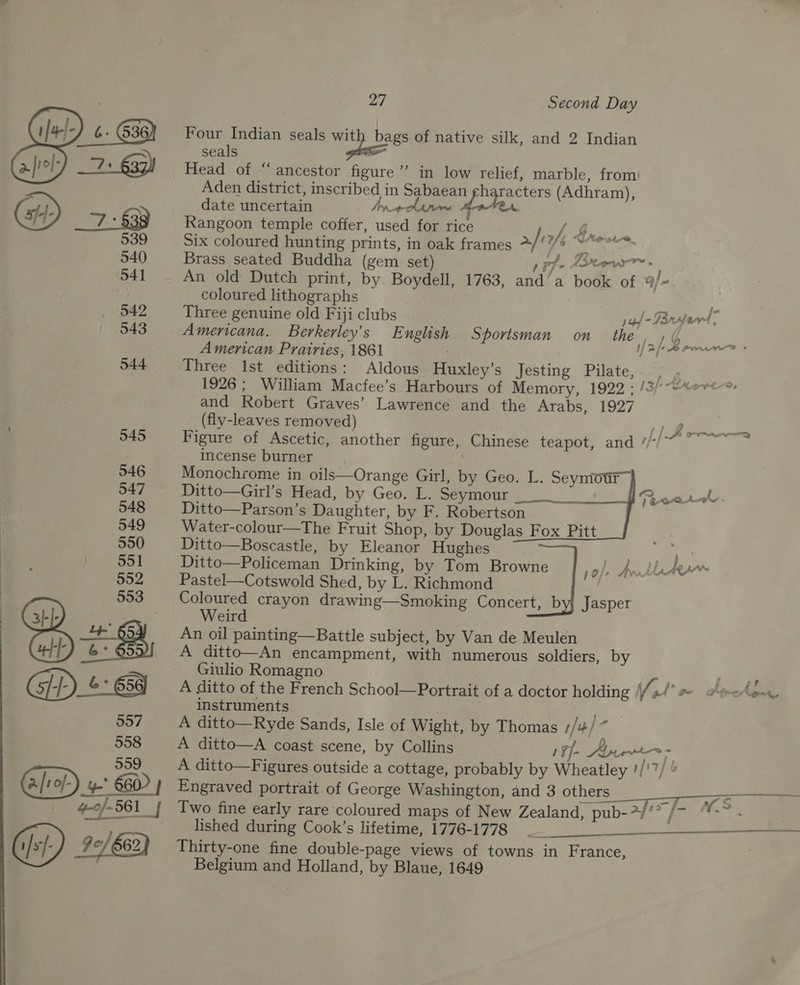 27 Second Day
1/4/- 6. 536 Four Indian seals with bags of native silk, and 2 Indian
seals
2/10/- 7. 637 Head of “ ancestor figure ” in low relief, marble, from
Aden district, inscribed in Sabaean characters (Adhram),
date uncertain
5/-/- 7. 538 Rangoon temple coffer, used for rice
539 Six coloured hunting prints, in oak frames 2/17/6
540 Brass seated Buddha (gem set)
541 An old Dutch print, by Boydell, 1763, and a book of 9/-
coloured lithographs
542 Three genuine old Fiji clubs
543 Americana. Berkerley's English Sportsman on the
American Prairies, 1861 1/2/-
544 Three 1st editions: Aldous Huxley's Jesting Pilate,
1926 ; William Macfee's Harbours of Memory, 1922 ; 13/-
and Robert Graves' Lawrence and the Arabs, 1927
(fly-leaves removed)
545 Figure of Ascetic, another figure, Chinese teapot, and 1/-/-
incense burner
546 Monochrome in oils—Orange Girl, by Geo. L. Seymour
547 Ditto—Girl's Head, by Geo. L. Seymour
548 Ditto—Parson's Daughter, by F. Robertson
549 Water-colour—The Fruit Shop, by Douglas Fox Pitt
550 Ditto—Boscastle, by Eleanor Hughes
551 Ditto—Policeman Drinking, by Tom Browne 10/-
552 Pastel—Cotswold Shed, by L. Richmond
553 Coloured crayon drawing—Smoking Concert, by Jasper
Weird
3/-/- 4. 654 An oil painting—Battle subject, by Van de Meulen
4/-/- 6. 655 A ditto—An encampment, with numerous soldiers, by
Giulio Romagno
5/-/- 6. 656 A ditto of the French School—Portrait of a doctor holding
instruments
557 A ditto—Ryde Sands, Isle of Wight, by Thomas 1/4/-
558 A ditto—A coast scene, by Collins
559 A ditto—Figures outside a cottage, probably by Wheatley 1/17/6
2/10/- 4. 660 Engraved portrait of George Washington, and 3 others
561 Two fine early rare coloured maps of New Zealand, pub- 2/15/- N.S.
lished during Cook's lifetime, 1776-1778
1/5/- 90/662 Thirty-one fine double-page views of towns in France,
Belgium and Holland, by Blaue, 1649